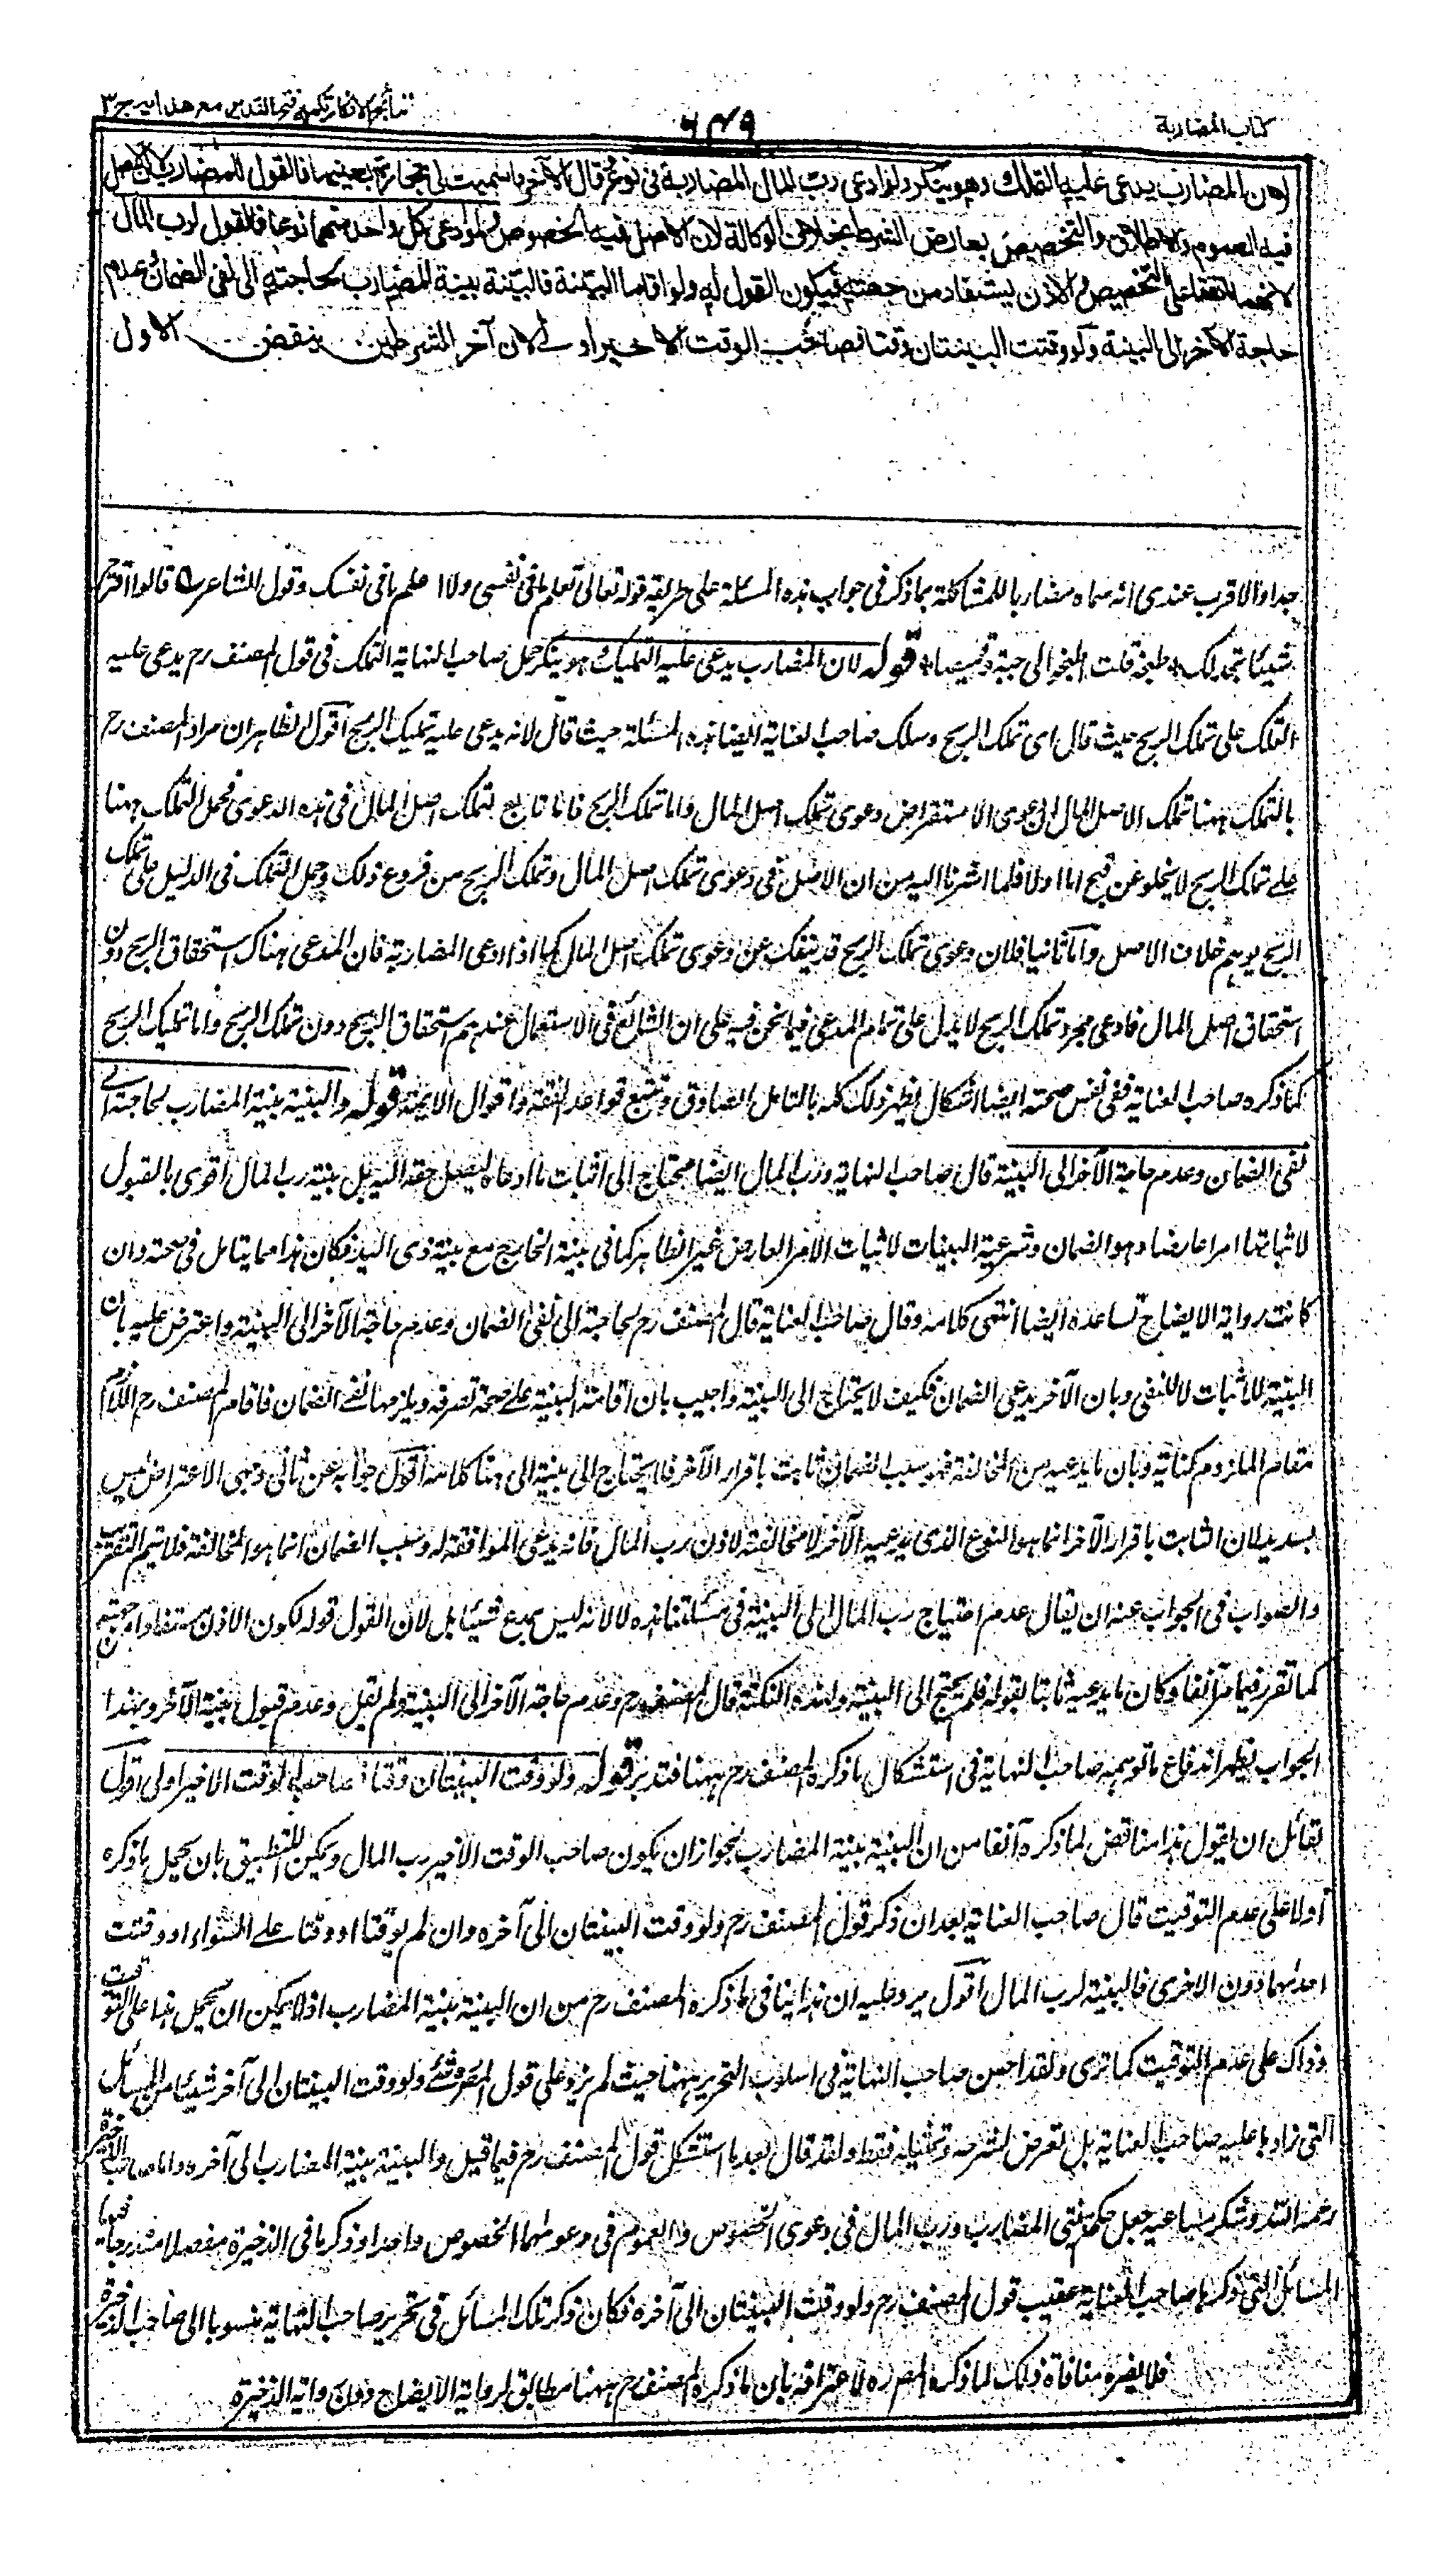 كتاب المضاربة
۶۴۹
نتائج الافكار تكملة فتح القدير مع هدايه ج ٣
لان المضارب يدعى عليه التملك وهو ينكر ولو ادعى رب المال المضاربة فى نوع وقال الآخر ما سميت لى تجارة بعينها فالقول للمضارب لان الاصل
فيه العموم والاطلاق والتخصيص بعارض الشرط بخلاف الوكالة لان الاصل فيه الخصوص ولو ادعى كل واحد منهما نوعا فالقول لرب المال
لانهما اتفقا على التخصيص والاذن يستفاد من جهته فيكون القول له ولو اقاما البينة فالبينة بينة المضارب لحاجته الى نفى الضمان وعدم
حاجة الآخر الى البينة ولو وقتت البينتان وقتا فصاحب الوقت الاخير اولى لان آخر الشرطين ينقض الاول
جدا والاقرب عندى انه سماه مضاربا للمشاكلة بما ذكر فى جواب هذه المسئلة على طريقة قوله تعالى تعلم ما فى نفسى ولا اعلم ما فى نفسك وقول الشاعر قالوا اقترح
شيئا نجد لك طبخه قلت اطبخوا لى جبة وقميصا قوله لان المضارب يدعى عليه التمليك وهو ينكر حمل صاحب النهاية التملك فى قول المصنف رح يدعى عليه
التملك على تملك الربح حيث قال اى تملك الربح وسلك صاحب العناية ايضا هذه المسئلة حيث قال لانه يدعى عليه تمليك الربح اقول الظاهر ان مراد المصنف رح
بالتملك ههنا تملك الاصل المال اذ دعوى الاستقراض دعوى تملك اصل المال واما تملك الربح فانما تابع لتملك اصل المال فى هذه الدعوى فحمل التملك ههنا
على تملك الربح لا يخلو عن قبح اما اولا فلما اشرنا اليه من ان الاصل فى دعوى تملك اصل المال وتملك الربح من فروع ذلك وحمل التملك فى الدليل على تملك
الربح يوهم خلاف الاصل واما ثانيا فلان دعوى تملك الربح قد ينفك عن دعوى تملك اصل المال كما اذا ادعى المضاربة فان المدعى هناك استحقاق الربح دون
استحقاق اصل المال فادعى مجرد تملك الربح لا يدل على تمام المدعى فيما نحن فيه على ان الشائع فى الاستعمال عندهم استحقاق الربح دون تملك الربح واما تمليك الربح
كما ذكره صاحب العناية ففى نفس صحته ايضا اشكال يظهر ذلك كله بالتامل الصادق وتتبع قواعد الفقه واقوال الائمة قوله والبينة بينة المضارب لحاجته الى
نفى الضمان وعدم حاجة الآخر الى البينة قال صاحب النهاية ورب المال ايضا محتاج الى اثبات ما ادعاه ليصل حقه اليه بل بينة رب المال اقوى بالقبول
لاثباتها امرا عارضا وهو الضمان وشرعية البينات لاثبات الامر العارض غير الظاهر كما فى بينة الخارج مع بينة ذى اليد فكان هذا مما يتامل فى صحته وان
كانت رواية الايضاح تساعده ايضا انتهى كلامه وقال صاحب العناية قال المصنف رح لحاجته الى نفى الضمان وعدم حاجة الآخر الى البينة واعترض عليه بان
البينة للاثبات لا للنفى وبان الآخر يدعى الضمان فكيف لا يحتاج الى البينة واجيب بان اقامة البينة على صحة تصرفه ويلزمها نفى الضمان فاقام المصنف رح اللازم
مقام الملزوم كناية وبان ما يدعيه من المخالفة فهو سبب الضمان ثابت باقرار الآخر فلا يحتاج الى بينة الى هنا كلامه اقول جوابه عن ثانى وجهى الاعتراض ليس
بسديد لان الثابت باقرار الآخر انما هو النوع الذى يدعيه الآخر لا مخالفة لاذن رب المال فانه يدعى الموافقة له وسبب الضمان انما هو المخالفة فلا يتم التقريب
والصواب فى الجواب عنه ان يقال عدم احتياج رب المال الى البينة فى مسئلتنا هذه لا لانه ليس بمدع شيئا بل لان القول قوله لكون الاذن مستفادا من جهته
كما تقرر فيما مر آنفا وكان ما يدعيه ثابتا بقوله فلم يحتج الى البينة ولهذه النكتة قال المصنف رح وعدم حاجة الآخر الى البينة ولم يقل وعدم قبول بينة الآخر وبهذا
الجواب يظهر اندفاع ما توهمه صاحب النهاية فى استشكال ما ذكره المصنف رح ههنا فتدبر قوله ولو وقت البينتان وقتا فصاحب الوقت الاخير اولى اقول
لقائل ان يقول هذا مناقض لما ذكره آنفا من ان البينة بينة المضارب لجواز ان يكون صاحب الوقت الاخير رب المال ويمكن التطبيق بان يحمل ما ذكره
اولا على عدم التوقيت قال صاحب العناية بعد ان ذكر قول المصنف رح ولو وقت البينتان الى آخره وان لم يوقتا او وقتا على السواء او وقتت
احدهما دون الاخرى فالبينة لرب المال اقول يرد عليه ان هذا ينافى ما ذكره المصنف رح من ان البينة بينة المضارب اذ لا يمكن ان يحمل هذا على التوقيت
وذاك على عدم التوقيت كما ترى ولقد احسن صاحب النهاية فى اسلوب التحرير ههنا حيث لم يزد على قول المصنف ولو وقت البينتان الى آخر شيئا من المسائل
التى زادها عليه صاحب العناية بل تعرض لشرحه وتمثيله فقط ولقد قال بعد ما استشكل قول المصنف رح فيما قيل والبينة بينة المضارب الى آخره واما صاحب الذخيرة
رحمه الله وشكر مساعيه جعل حكم بينتى المضارب ورب المال فى دعوى الخصوص والعموم فى دعوٮهما الخصوص واحدا وذكرها فى الذخيرة مفصلا مندرجا فيها
المسائل التى ذكرها صاحب العناية عقيب قول المصنف رح ولو وقت البينتان الى آخره فكان ذكر تلك المسائل فى تحرير صاحب النهاية منسوبا الى صاحب الذخيرة
فلا يضره منافاة ذلك لما ذكره المصره لاعترافه بان ما ذكره المصنف رح ههنا مطابق لرواية الايضاح دون رواية الذخيرة